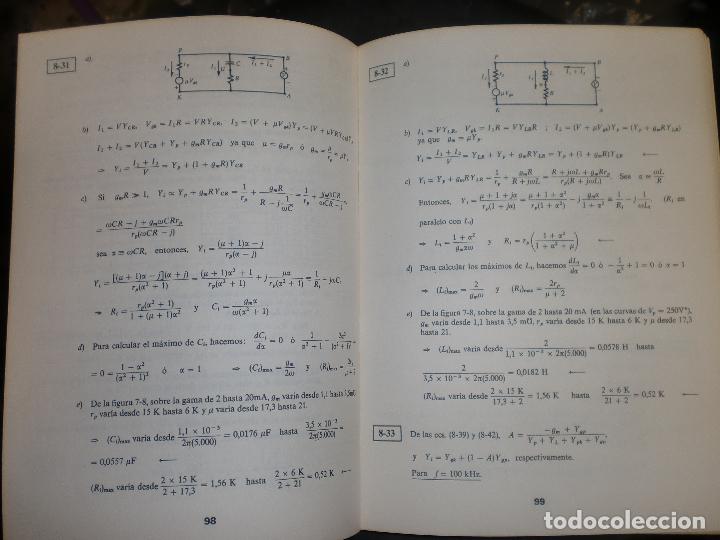 8-31
a)
P
B
I₂
r_p
I₁
C
I₁ + I₂
μV_gk
R
K
A
b) I₁ = VY_CR, V_gk = I₁R = VRY_CR, I₂ = (V + μV_gk)Y_p = (V + μVRY_CR)Y_p
I₁ + I₂ = V(Y_CR + Y_p + g_mRY_CR) ya que μ = g_mr_p ó g_m = μY_p
⇒ Y_i = (I₁ + I₂)/V = Y_p + (1 + g_mR)Y_CR
c) Si g_mR ≫ 1, Y_i ≈ Y_p + g_mRY_CR = 1/r_p + g_mR/(R − j 1/ωC) = 1/r_p +
= (ωCR − j + g_mωCRr_p)/(r_p(ωCR − j))
sea α ≡ ωCR, entonces, Y_i = ((μ + 1)α − j)/(r_p(α − j))
Y_i = ([(μ + 1)α − j](α + j))/(r_p(α² + 1)) = ((μ + 1)α² + 1)/(r_p(α² + 1)) + j μα/(r_p(α² + 1)) = 1/R_i − jωC_i
⇒ R_i = r_p(α² + 1)/(1 + (μ + 1)α²) y C_i = g_mα/(ω(α² + 1))
d) Para calcular el máximo de C_i, hacemos: dC_i/dα = 0 ó 1/(α² + 1) −
= 0 = (1 − α²)/(α² + 1)² ó α = 1 ⇒ (C_i)max = g_m/2ω y (R_i)max =
e) De la figura 7-8, sobre la gama de 2 hasta 20mA, g_m varia desde 1,1 hasta 3,5m℧
r_p varia desde 15 K hasta 6 K y μ desde 17,3 hasta 21.
⇒ (C_i)max varia desde (1,1 × 10⁻³)/(2π(5.000)) = 0,0176 μF hasta (3,5 × 10⁻³)/(2π(5.000))
= 0,0557 μF
(R_i)max varia desde (2 × 15 K)/(2 + 17,3) = 1,56 K hasta (2 × 6 K)/(2 + 21) = 0,52 K
98
8-32
a)
P
B
I₂
r_p
I₁
L
I₁ + I₂
μV_gk
R
K
A
b) I₁ = VY_LR, V_gk = I₁R = VY_LRR ; I₂ = (V + μV_gk)Y_p = (Y_p + g_mRY_LR)
ya que μY_p = g_m.
Y_i = (I₁ + I₂)/V = Y_LR + Y_p + g_mRY_LR = Y_p + (1 + g_mR)Y_LR
c) Y_i = Y_p + g_mRY_LR = 1/r_p + g_mR/(R + jωL) = (R + jωL + g_mRr_p)/(r_p(R + jωL)). Sea α ≡ ωL/R
Entonces, Y_i = (μ + 1 + jα)/(r_p(1 + jα)) = (μ + 1 + α²)/(r_p(1 + α²)) − j g_mα/(1 + α²) ≡ 1/R_i − j 1/ωL_i, (R_i en
paralelo con L_i)
⇒ L_i = (1 + α²)/(g_mαω) y R_i = r_p((1 + α²)/(1 + α² + μ))
d) Para calcular los máximos de L_i, hacemos dL_i/dα = 0 ó −1/α² + 1 = 0 ó α = 1
⇒ (L_i)max = 2/(g_mω) y (R_i)max = 2r_p/(μ + 2)
e) De la figura 7-8, sobre la gama de 2 hasta 20 mA (en las curvas de V_p = 250V*),
g_m varia desde 1,1 hasta 3,5 m℧, r_p varia desde 15 K hasta 6 K y μ desde 17,3
hasta 21.
⇒ (L_i)max varia desde 2/(1,1 × 10⁻³ × 2π(5.000)) = 0,0578 H hasta
2/(3,5 × 10⁻³ × 2π(5.000)) = 0,0182 H
(R_i)max varia desde (2 × 15 K)/(17,3 + 2) = 1,56 K hasta (2 × 6 K)/(21 + 2) = 0,52 K
8-33
De las ecs. (8-39) y (8-42), A = (−g_m + Y_gp)/(Y_p + Y_L + Y_pk + Y_gp),
y Y_i = Y_gk + (1 − A)Y_gp, respectivamente.
Para f = 100 kHz.
99
todocoleccion.net